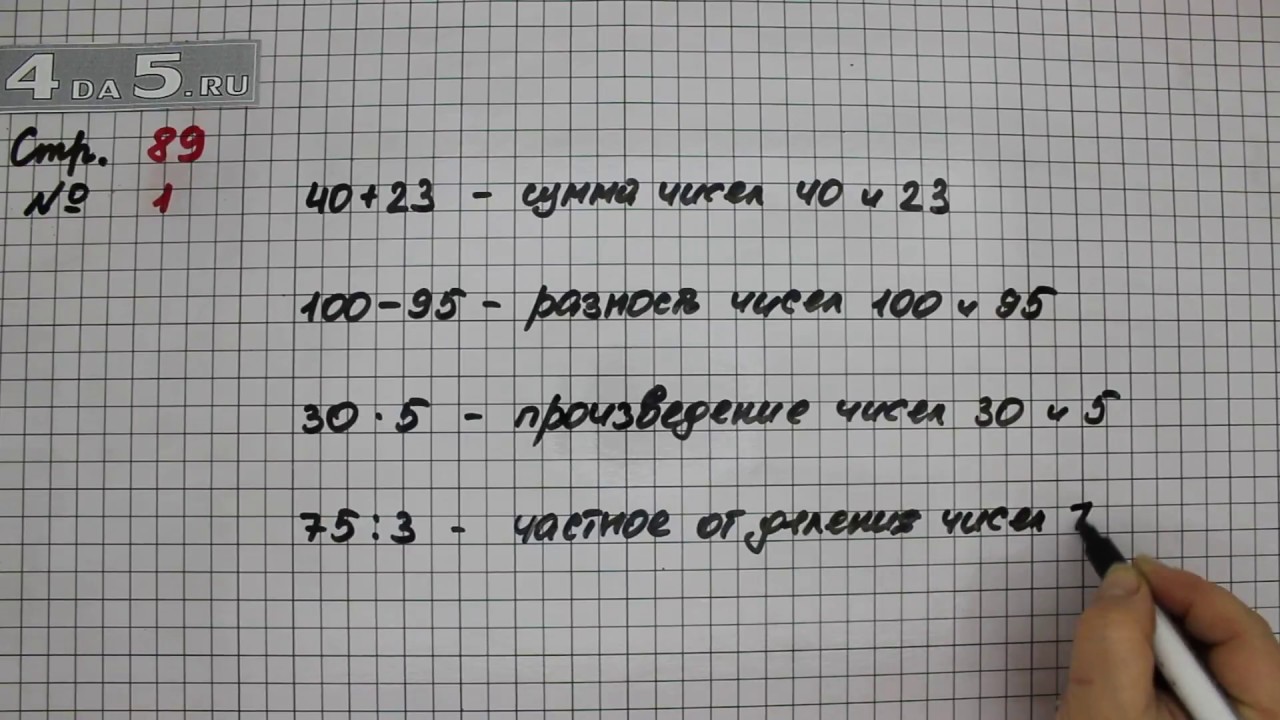 4DA5.RU
Стр. 89
№ 1
40+23 - сумма чисел 40 и 23
100-95 - разность чисел 100 и 95
30·5 - произведение чисел 30 и 5
75:3 - частное от деления чисел 7